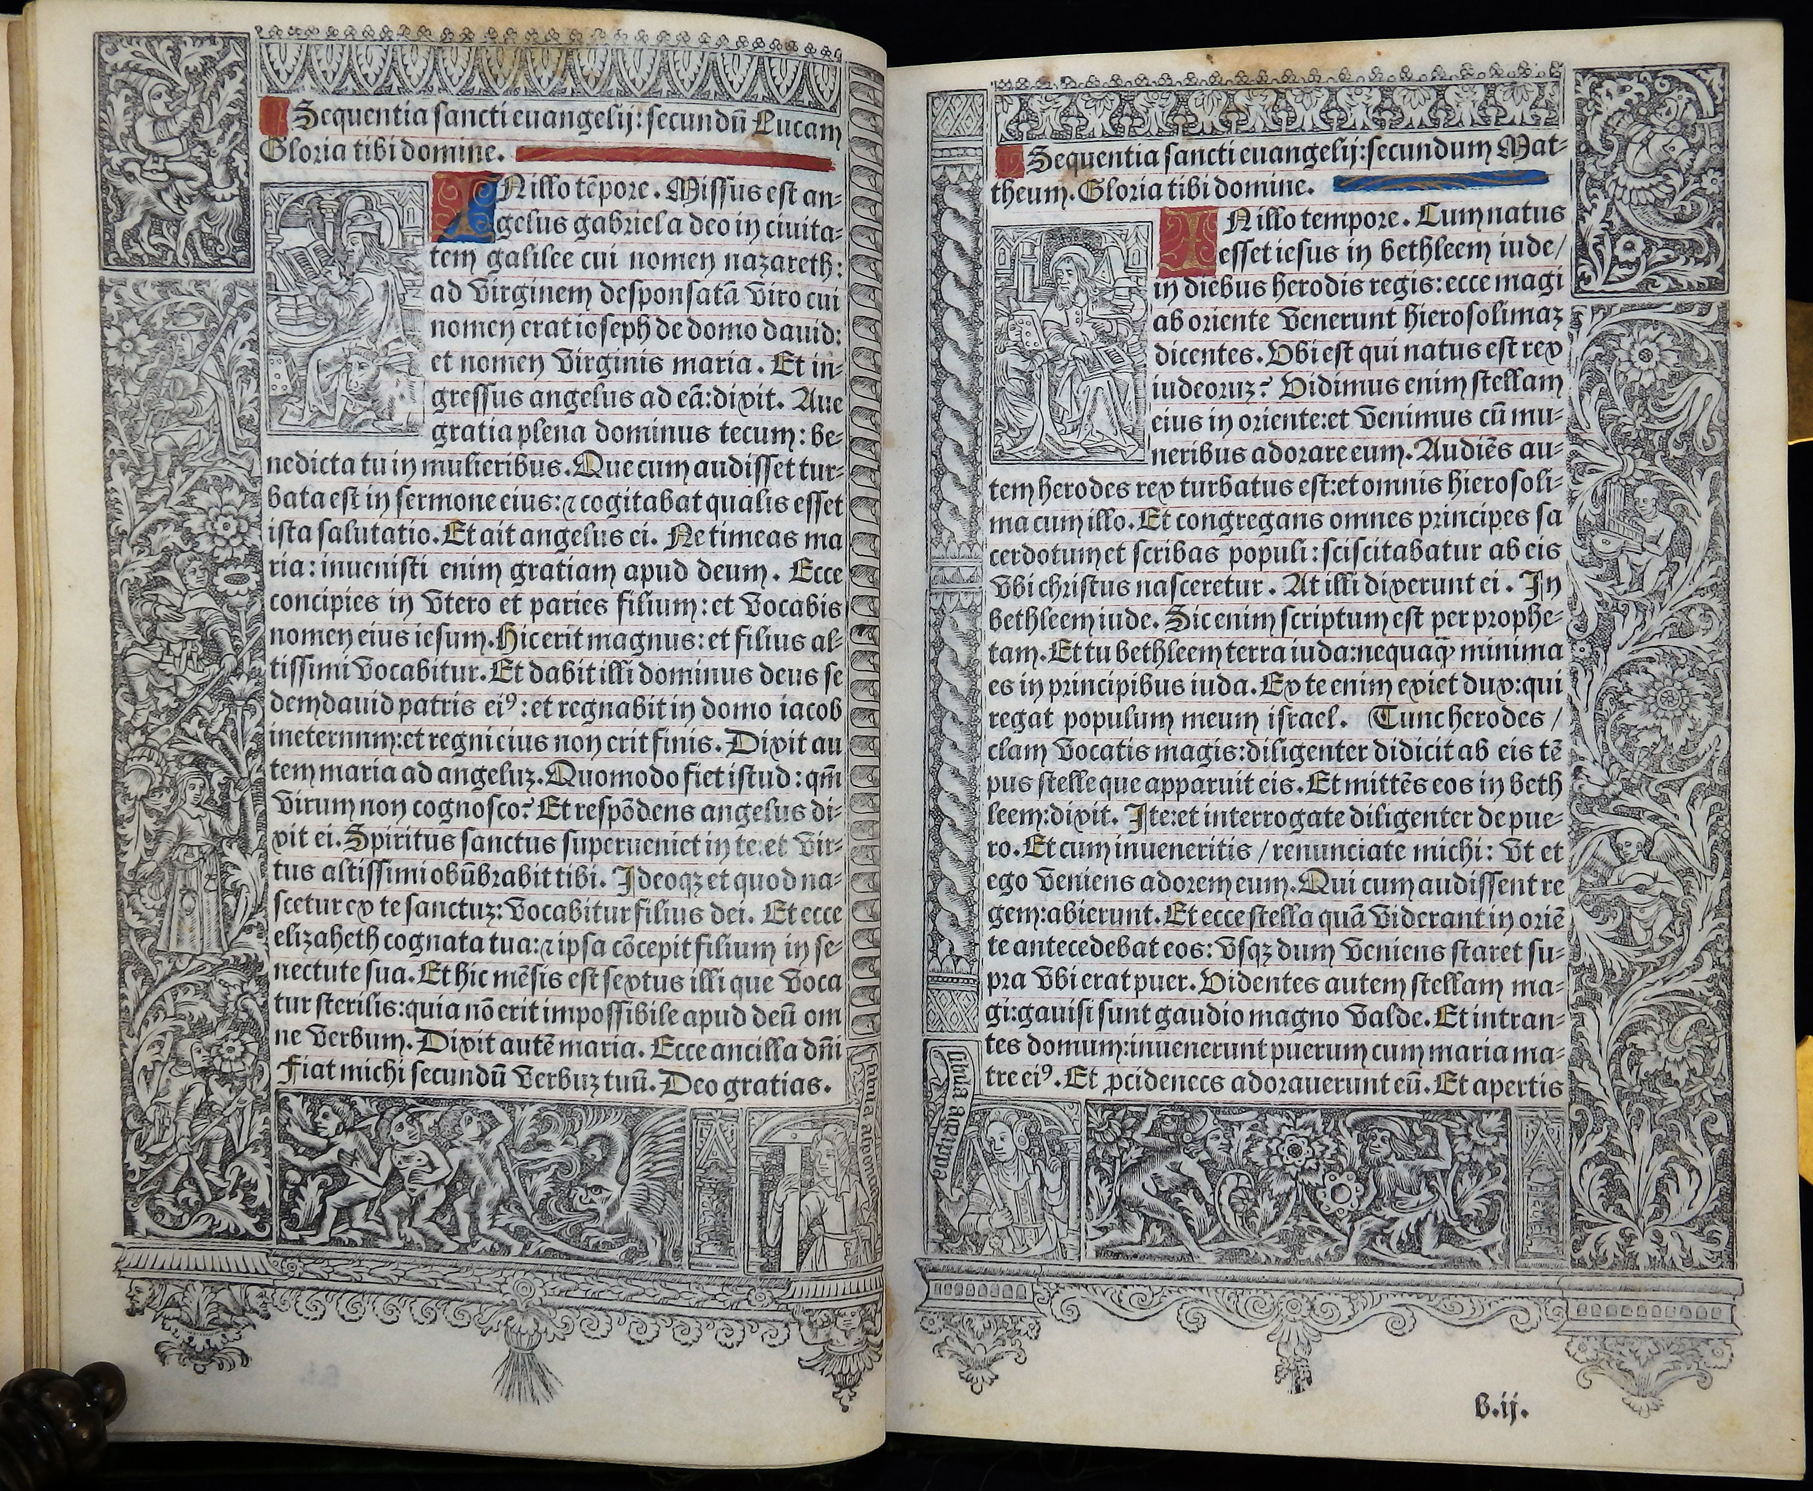 Sequentia sancti euangelij: secundū Lucam
Gloria tibi domine.
IN illo tēpore. Missus est an-
gelus gabriel a deo in ciuita-
tem galilee cui nomen nazareth:
ad virginem desponsatā viro cui
nomen erat ioseph de domo dauid:
et nomen virginis maria. Et in-
gressus angelus ad eā: dixit. Aue
gratia plena dominus tecum: be-
nedicta tu in mulieribus. Que cum audisset tur-
bata est in sermone eius: ⁊ cogitabat qualis esset
ista salutatio. Et ait angelus ei. Ne timeas ma
ria: inuenisti enim gratiam apud deum. Ecce
concipies in vtero et paries filium: et vocabis
nomen eius iesum. Hic erit magnus: et filius al-
tissimi vocabitur. Et dabit illi dominus deus se
dem dauid patris eiꝰ: et regnabit in domo iacob
in eternum: et regni eius non erit finis. Dixit au
tem maria ad angeluz. Quomodo fiet istud: qm̄
virum non cognosco? Et respōdens angelus di-
xit ei. Spiritus sanctus superueniet in te: et vir-
tus altissimi obūbrabit tibi. Ideoqꝫ et quod na-
scetur ex te sanctuz: vocabitur filius dei. Et ecce
elizabeth cognata tua: ⁊ ipsa cōcepit filium in se-
nectute sua. Et hic mēsis est sextus illi que voca
tur sterilis: quia nō erit impossibile apud deū om
ne verbum. Dixit autē maria. Ecce ancilla dn̄i
Fiat michi secundū verbuz tuū. Deo gratias.
Sequentia sancti euangelij: secundum Mat-
theum. Gloria tibi domine.
IN illo tempore. Cum natus
esset iesus in bethleem iude/
in diebus herodis regis: ecce magi
ab oriente venerunt hierosolimaz
dicentes. Vbi est qui natus est rex
iudeoruz? Vidimus enim stellam
eius in oriente: et venimus cū mu-
neribus adorare eum. Audiēs au-
tem herodes rex turbatus est: et omnis hierosoli-
ma cum illo. Et congregans omnes principes sa
cerdotum et scribas populi: sciscitabatur ab eis
vbi christus nasceretur. At illi dixerunt ei. In
bethleem iude. Sic enim scriptum est per prophe-
tam. Et tu bethleem terra iuda: nequaq̄ minima
es in principibus iuda. Ex te enim exiet dux: qui
regat populum meum israel. Tunc herodes/
clam vocatis magis: diligenter didicit ab eis tē
pus stelle que apparuit eis. Et mittēs eos in beth
leem: dixit. Ite: et interrogate diligenter de pue-
ro. Et cum inueneritis/ renunciate michi: vt et
ego veniens adorem eum. Qui cum audissent re
gem: abierunt. Et ecce stella quā viderant in oriē
te antecedebat eos: vsqꝫ dum veniens staret su-
pra vbi erat puer. Videntes autem stellam ma-
gi: gauisi sunt gaudio magno valde. Et intran-
tes domum: inuenerunt puerum cum maria ma-
tre eiꝰ. Et ꝓcidentes adorauerunt eū. Et apertis
b.ij.